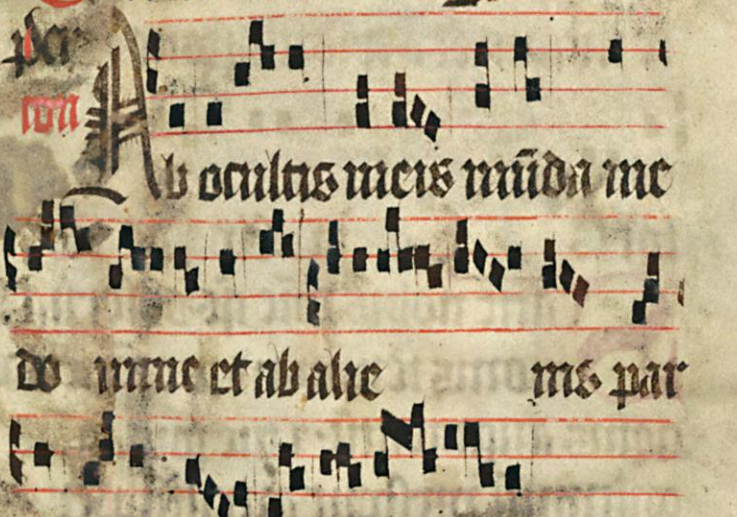 per
Ab ocultis meis mūda me
do mine et ab alie nis par